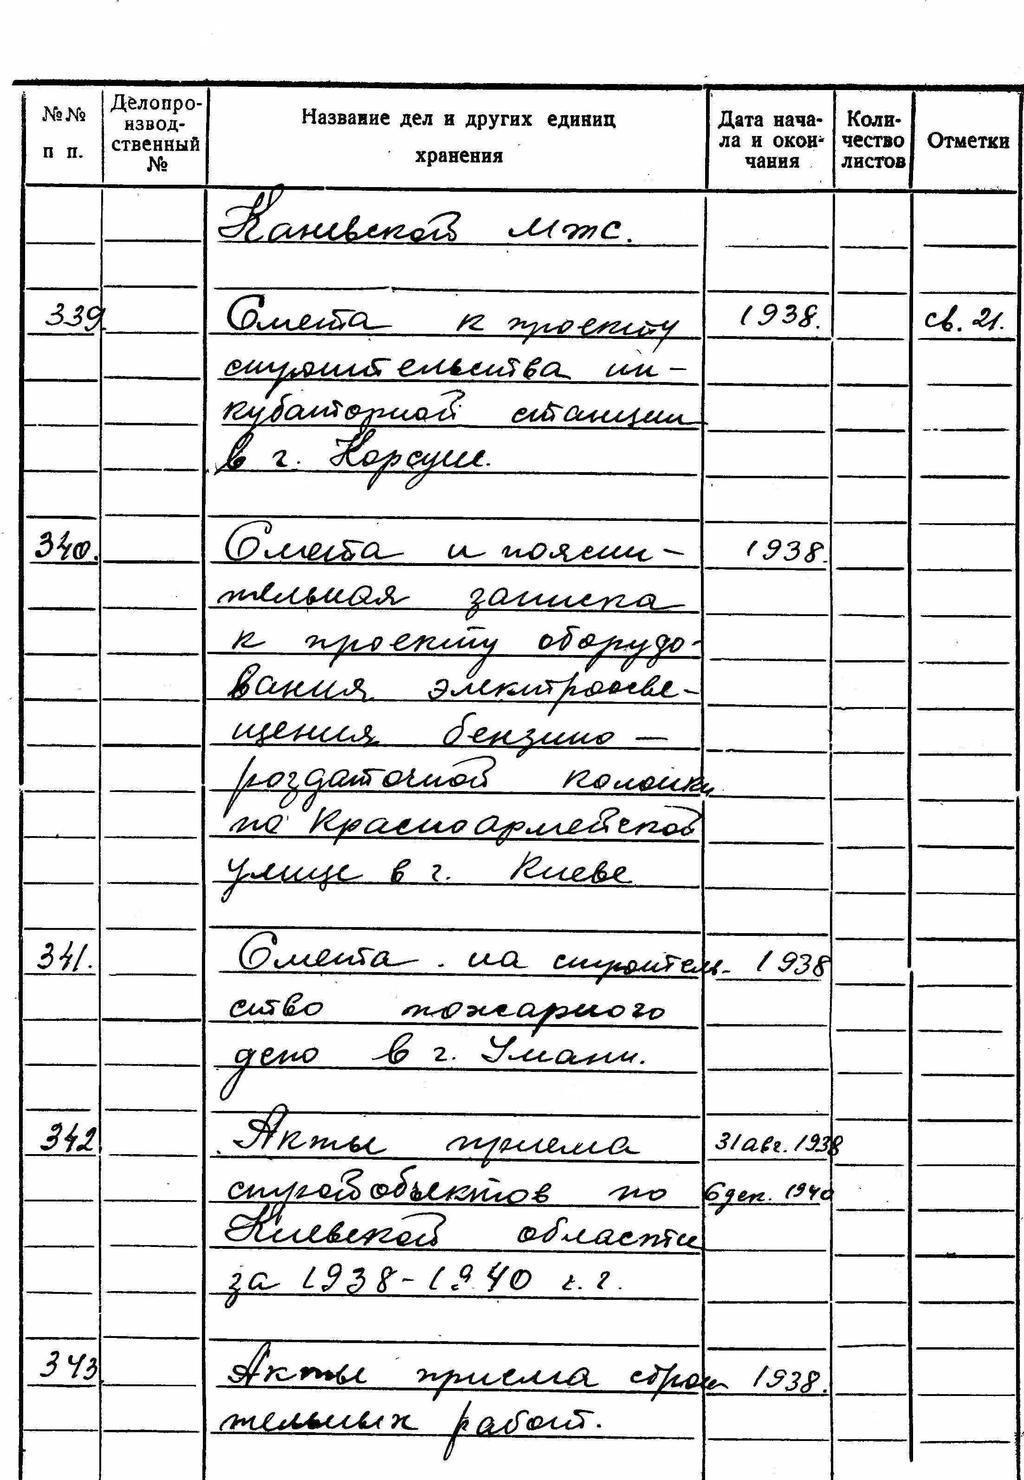 №№ п п. Делопро- извод- ственный № Название дел и других единиц хранения Дата нача- ла и окон- чания Коли- чество листов Отметки
Каневской мтс.
339 Смета к проекту 1938. св. 21.
строительства ин-
кубаторной станции
в г. Корсуни.
340. Смета и поясни- 1938.
тельная записка
к проекту оборудо-
вания электроосве-
щения бензино-
роздаточной колонки
по Красноармейской
улице в г. Киеве
341. Смета на строитель- 1938
ство пожарного
депо в г. Умани.
342. Акты приема 31 авг. 1938
стройобъектов по 6 дек. 1940
Киевской области
за 1938-1940 г.г.
343 Акты приема строи- 1938.
тельных работ.